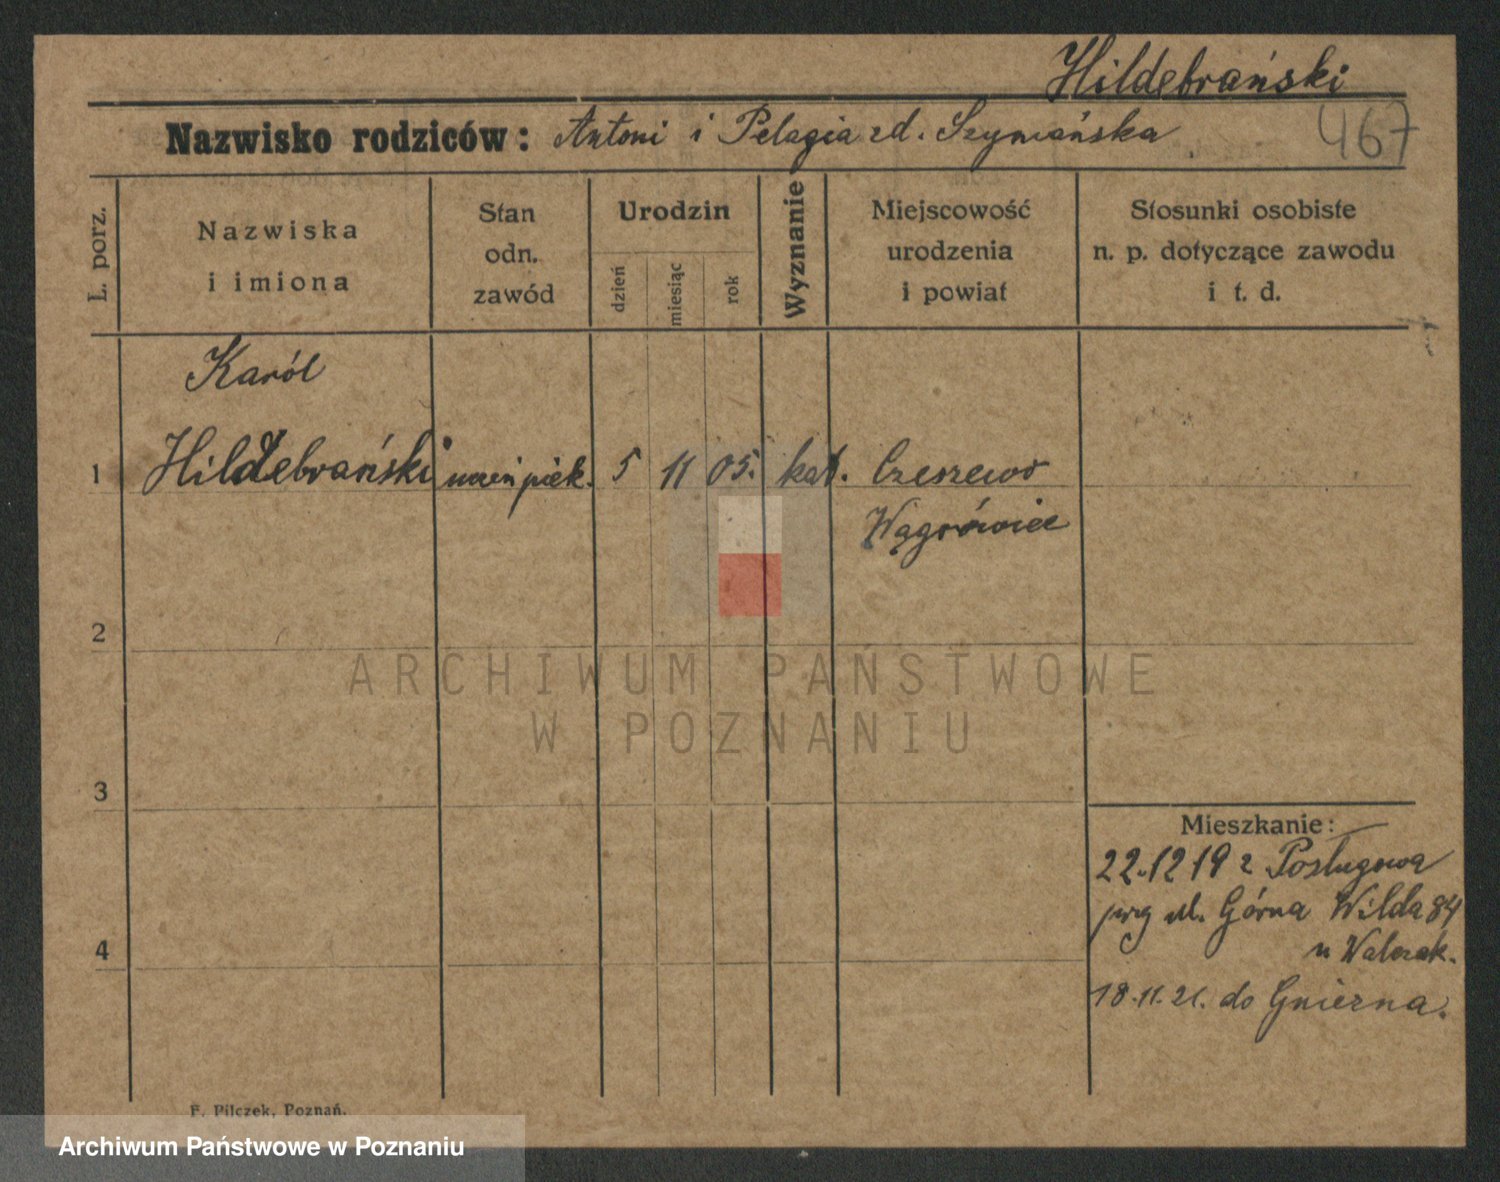 Hildebrański
Nazwisko rodziców: Antoni i Pelagia zd. Szymańska 467
L. porz.
Nazwiska
i imiona
Stan
odn.
zawód
Urodzin
dzień
miesiąc
rok
Wyznanie
Miejscowość
urodzenia
i powiat
Stosunki osobiste
n. p. dotyczące zawodu
i t. d.
Karól
1 Hildebrański uczeń piek. 5 11 05. kat. Czeszewo
Wągrówiec
2
ARCHIWUM PAŃSTWOWE
W POZNANIU
3
Mieszkanie:
22.12 19 z
ul. Górna Wilda 84
u Walczak.
4
18.11.21. do Gniezna.
F. Pilczek, Poznań.
Archiwum Państwowe w Poznaniu